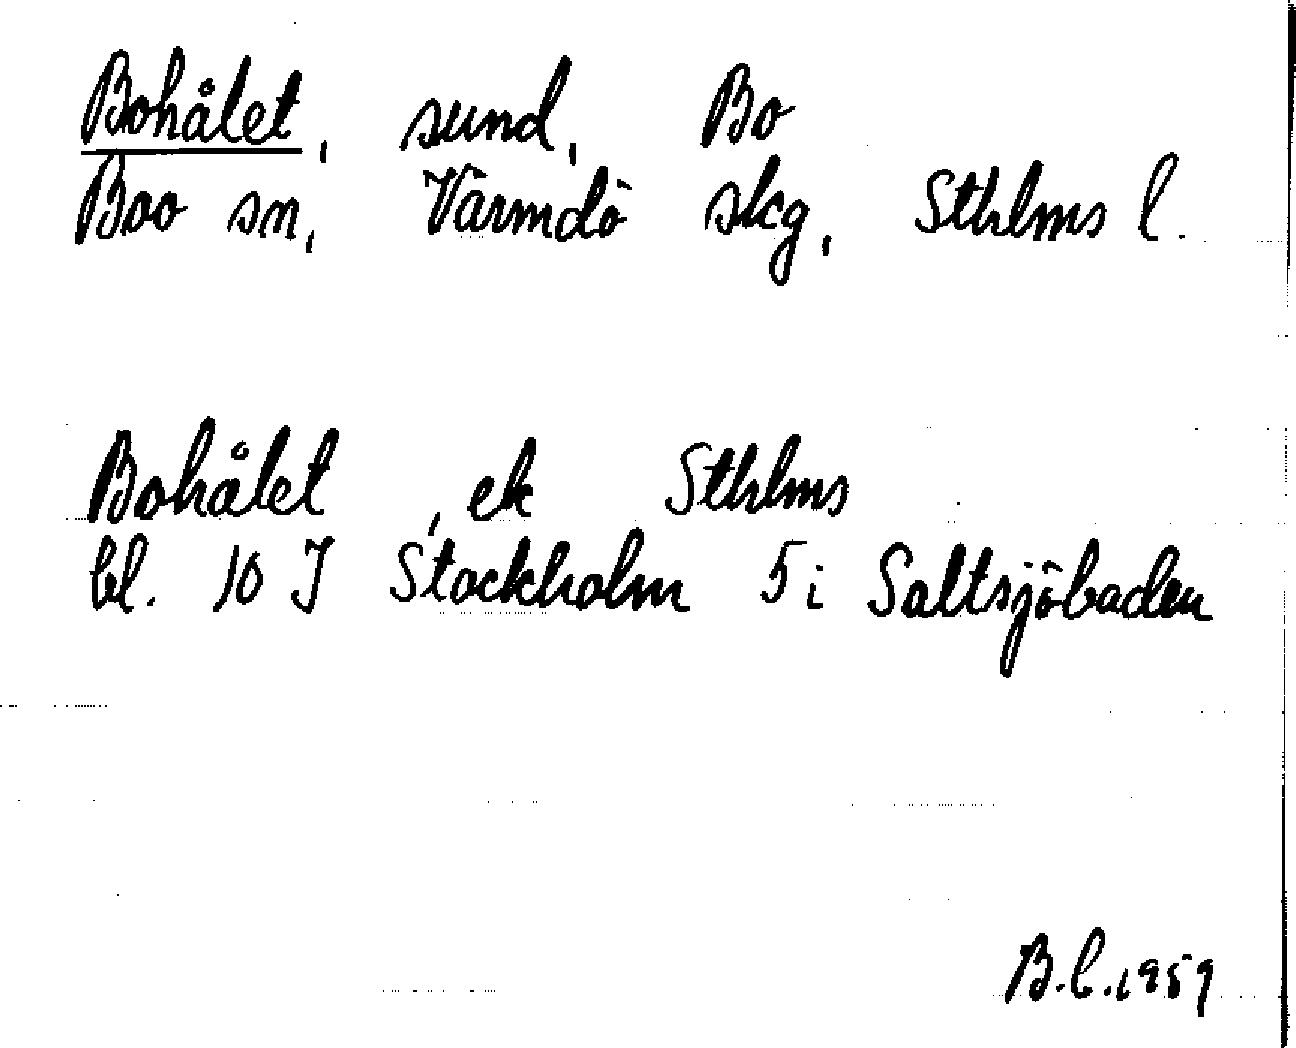 Bohålet, sund, Bo
Boo sn, Värmdö skg, Sthlms l.
Bohålet, ek Sthlms
bl. 10 J Stockholm 5 i Saltsjöbaden
B.C. 1959